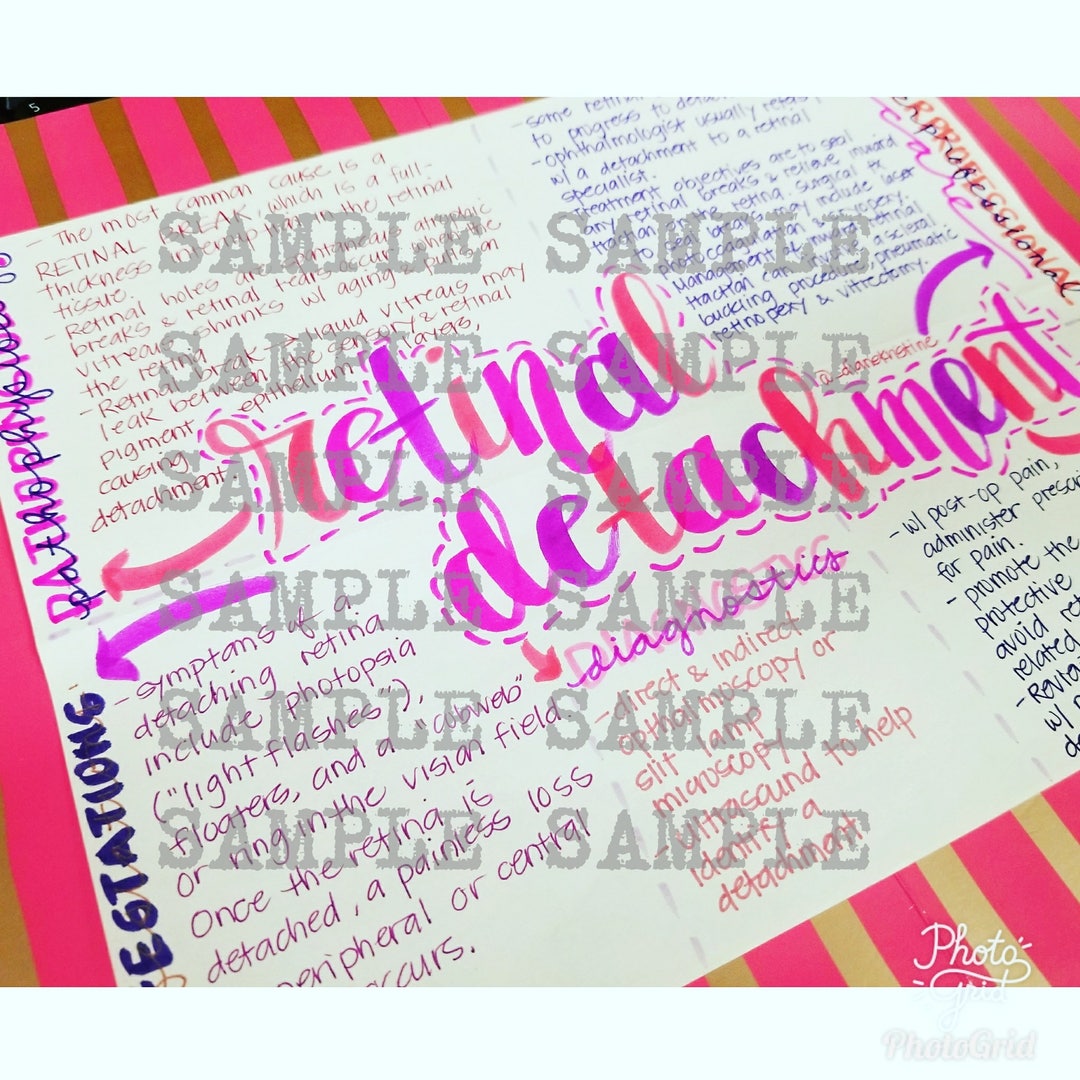 5
PATHOPHYSIOLO
pathophysiolo
- The most common cause is a
RETINAL BREAK, which is a full-
thickness interruption in the retinal
tissue.
- Retinal holes are spontaneous atrophic
breaks & retinal tears occur when the
vitreous shrinks w/ aging & pulls on
the retina
- Retinal break → liquid vitreous may
leak between the sensory & retinal
pigment epithelium layers,
causing
detachment.
- some retinal
to progress to detac
- ophthalmologist usually refers
w/ a detachment to a retinal
specialist.
Treatment objectives are to seal
any retinal breaks & relieve inward
traction on the retina. surgical tx
to seal breaks may include laser
photocoagulation & cryopexy.
Management of inward retinal
traction can involve a scleral
buckling procedure, pneumatic
retinopexy & vitrectomy.
ERPROFESSIONAL
care
retinal
detachment
ESTATIONS
- symptoms of a
detaching retina
include photopsia
("light flashes"),
floaters, and a "cobweb"
or ring in the vision field.
Once the retina is
detached, a painless loss
peripheral or central
occurs.
DIAGNOSTICS
diagnostics
- direct & indirect
opthalmoscopy or
slit lamp
microscopy
- ultrasound to help
identify a
detachment
- w/ post-op pain,
administer prescri
for pain.
- promote the
protective
avoid ret
related
- Revia
w/
de
SAMPLE SAMPLE
SAMPLE SAMPLE
SAMPLE SAMPLE
SAMPLE SAMPLE
SAMPLE SAMPLE
SAMPLE SAMPLE
Photo
Grid
PhotoGrid